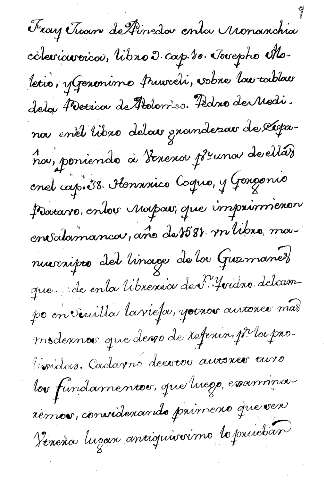 Fray Juan de Pineda en la Monarchia
eclesiastica, libro 2. cap. 30. Josepho Mo-
letio, y Geronimo Ruuceli, sobre las tablas
dela Betica de Ptolomeo. Pedro de Medi-
na enel libro delas grandezas de Espa-
ña, poniendo à Xerez pr. una de ellas
en el cap. 38. Henrrico Coquo, y Georgonio
Batavo, en los Mapas, que imprimieron
en Salamanca, año de 1581. un libro, ma-
nuscripto del linage de los Guzmanes
que de en la libreria de Sn. Ysidro del cam-
po en Sevilla la vieja, y otros autores mas
modernos que dexo de referir, pr. la pro-
lixidad. Cada uno de estos autores tuvo
los fundamentos, que luego, examina-
remos, considerando primero que ser
Xerez lugar antiquissimo lo prueban